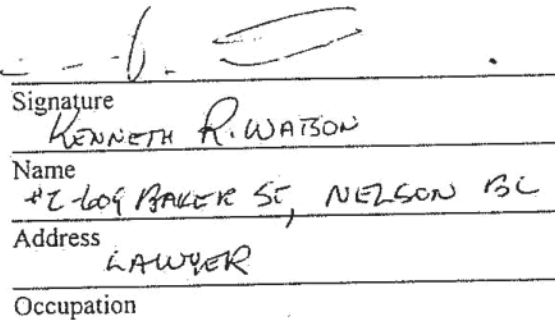 Signature
KENNETH R. WATSON
Name
#2-609 BAKER ST, NELSON BC
Address
LAWYER
Occupation